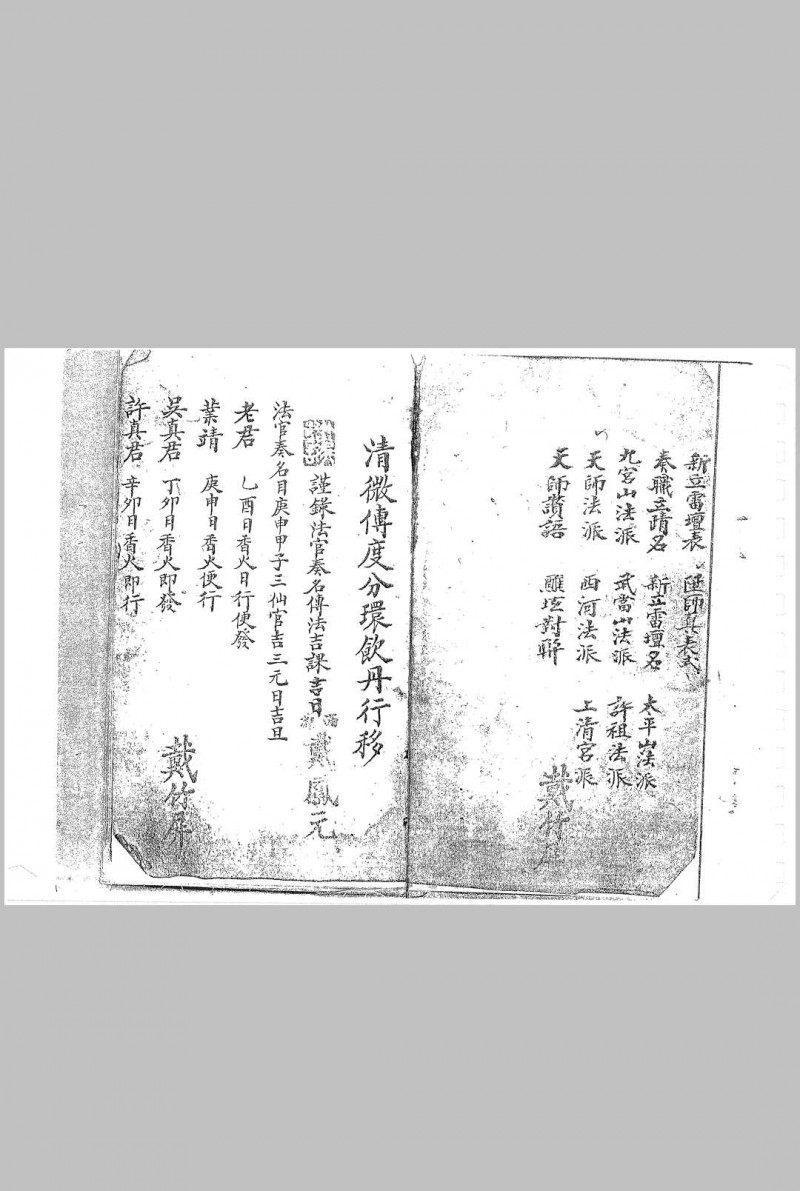 新立雷壇表 匯師真表式
奏職立靖名 新立雷壇名 太平山法派
九宮山法派 武當山法派 許祖法派
天師法派 西河法派 上清宮派
天師讚語 醮垣對聯
戴竹
清微傳度分環飲丹行移
謹錄法官奏名傳法吉課吉日 戴鳳元
法官奏名目庚申甲子三仙官吉三元日吉旦
老君 乙酉日香火日行便發
葉靖 庚申日香火便行
吳真君 丁卯日香火即發 戴竹犀
許真君 辛卯日香火即行